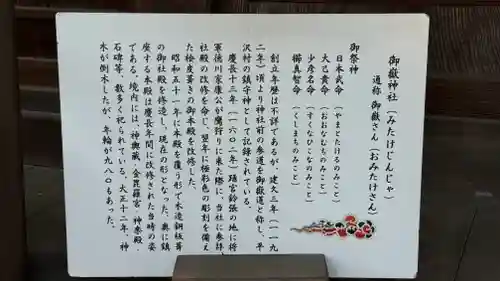 御嶽神社（みたけじんじゃ）
通称 御嶽さん（おみたけさん）
御祭神
日本武尊命（やまとたけるのみこと）
大己貴命（おおなむちのみこと）
少彦名命（すくなひこなのみこと）
櫛真智命（くしまちのみこと）
創立年歴は不詳であるが、建久三年（一一九
二年）頃より神社前の参道を御嶽道と称し、平
沢村の鎮守神として記録されている。
慶長十三年（一六〇二年）
軍徳川家康公が鷹狩りに来た際に、当社に参拝、
社殿の改修を命じ翌年に極彩色の彫刻を備え
た桧皮葺きの御本殿を改修した。
昭和五十一年に本殿を覆う形で木造銅板葺
の御社殿を修造し、現在の形となった。奥に鎮
座する本殿は慶長年間に改修された当時の姿
である。境内には、神輿蔵、金毘羅宮、神楽殿、
石碑等、数多く祀られている。大正十二年、神
木が倒木したが、年輪が九八〇もあった。